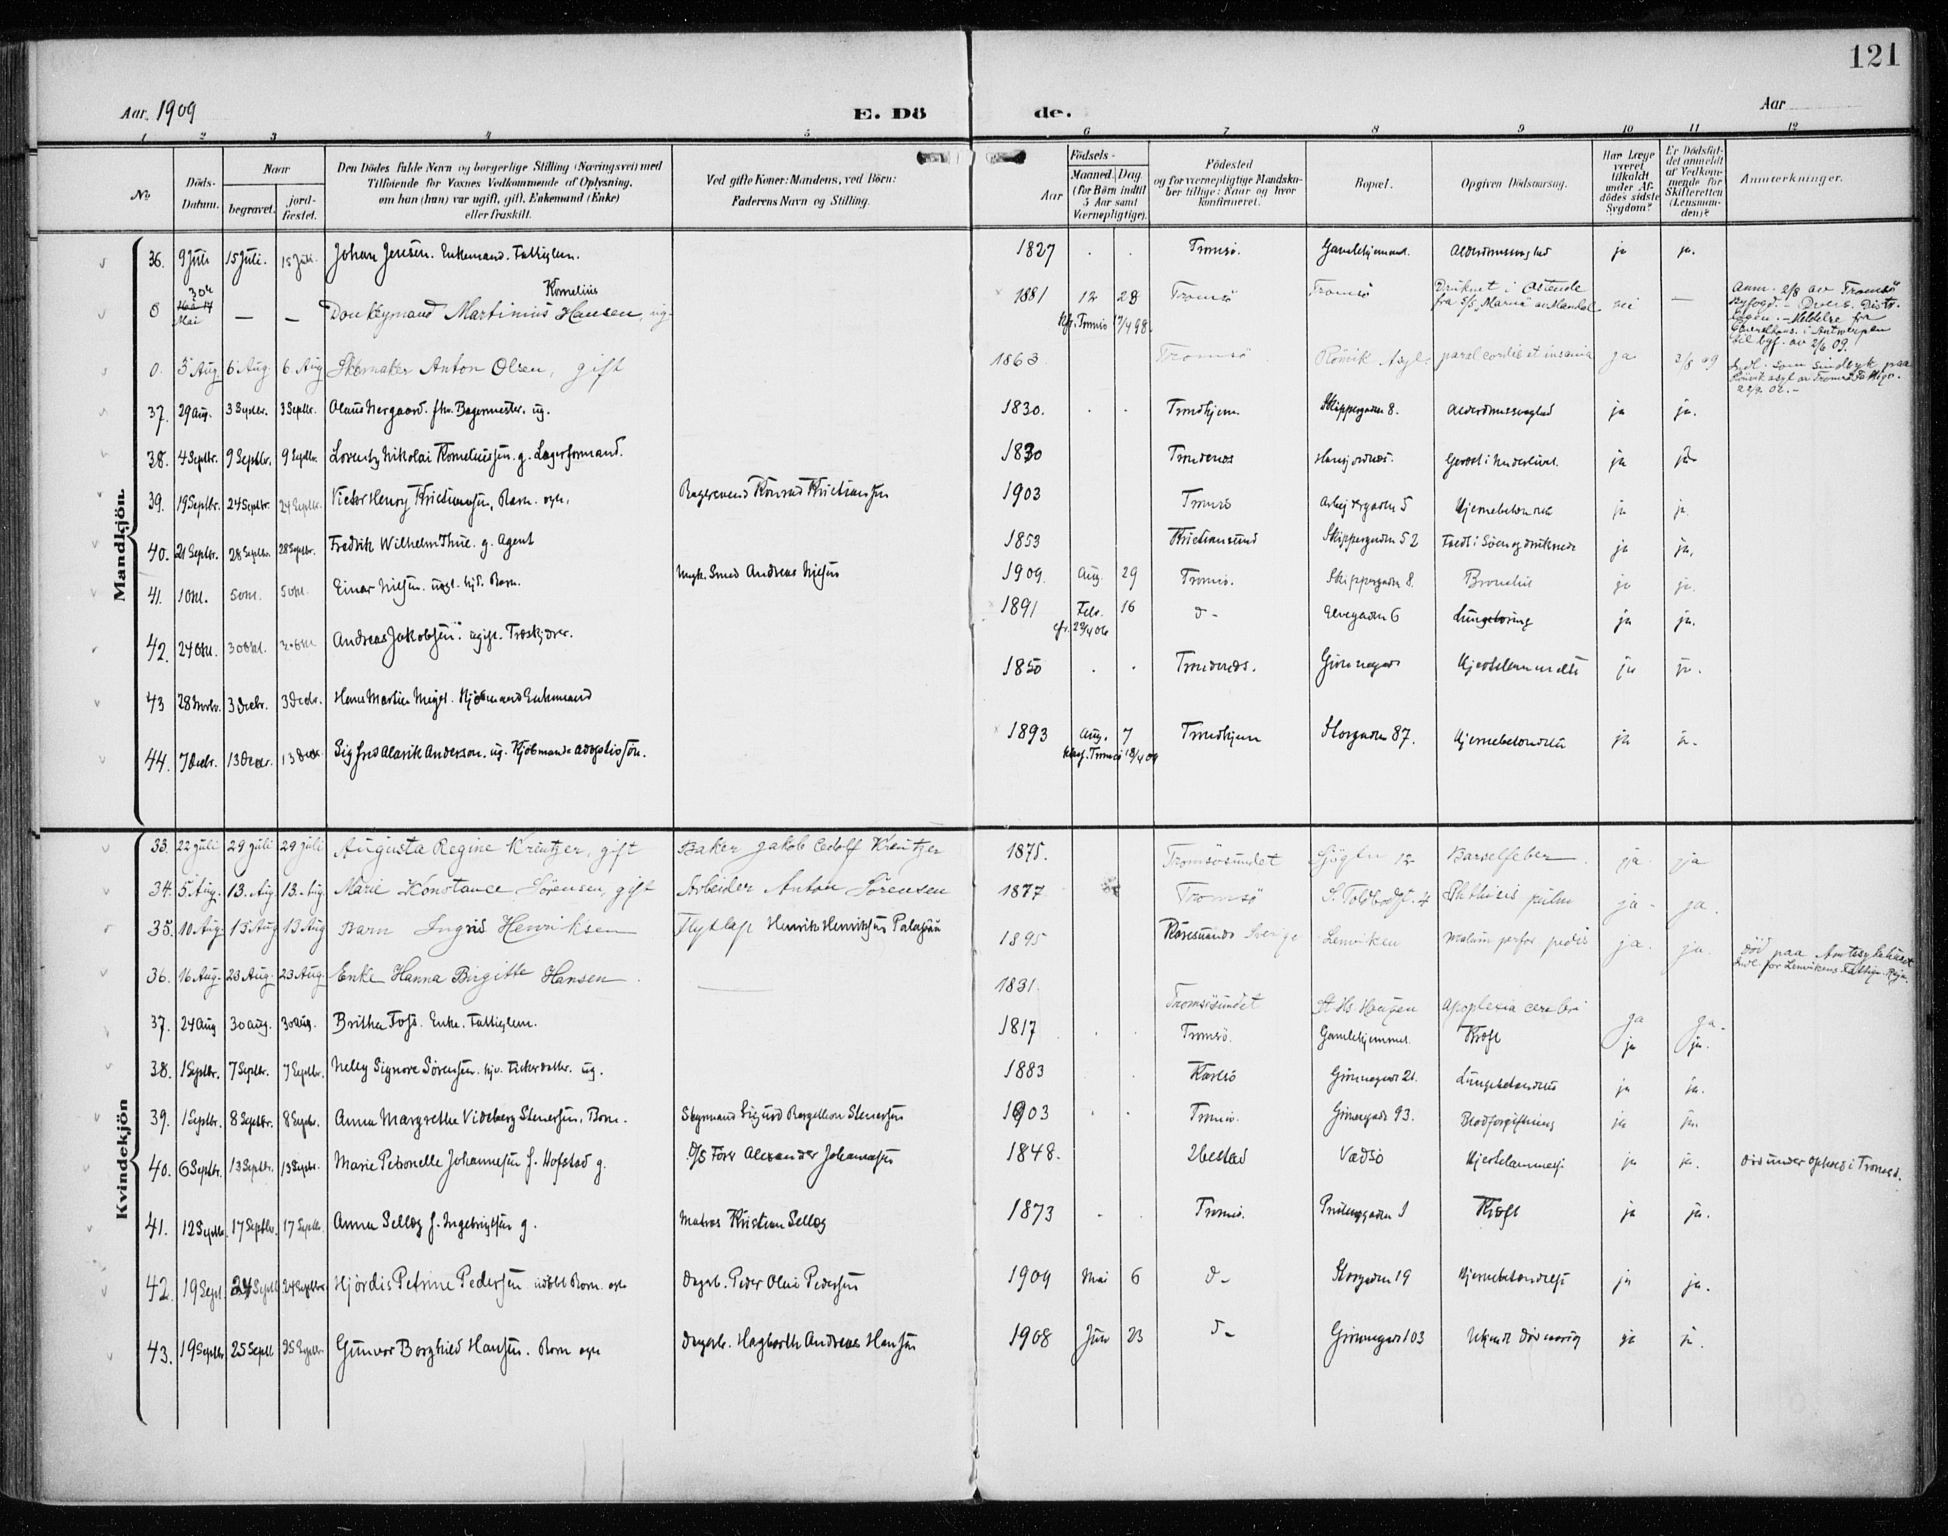 121
Aar. 1909
E. Dö
de.
Aar
1 2 3 4 5 6 7 8 9 10 11 12
No.
Döds-Datum.
Naar
begravet.
jord-fæstet.
Den Dödes fulde Navn og borgerlige Stilling (Næringsvei) med
Tilföiende for Voxnes Vedkommende af Oplysning,
om han (hun) var ugift, gift, Enkemand (Enke)
eller fraskilt.
Ved gifte Koner: Mandens, ved Börn:
Faderens Navn og Stilling.
Födsels-
Aar
Maaned. Dag.
(for Börn indtil
5 Aar samt
Værnepligtige).
Födested
og for værnepligtige Mandskaber tillige: Naar og hvor
konfirmeret.
Bopæl.
Opgiven Dödsaarsag.
Har Læge
været
tilkaldt
under Afdödes sidste
Sygdom?
Er Dödsfaldet anmeldt
af Vedkommende for
Skifteretten
(Lensmanden)?
Anmærkninger.
Mandkjön.
36. 9 Juli 15 Juli. 15 Juli. Johan Jensen. Enkemand. Fattiglem. 1827 Tromsö. Gamlehjemmet. ja ja.
0 Mai — — Donkeymand Martinius Kornelius Hansen, ug. 1881 12 28 Tromsö Tromsö Druknet i Ostende fra S/S "Maria" nei — Anm. 2/8 av Tromsö Byfogd.
0. 3 Aug. 6 Aug 6 Aug Skomaker Anton Olsen, gift 1863. Tromsö Rönvik Asyl. paral. cordis et insania ja 2/8 09 Indl. som sindssyk paa Rönvik asyl av Tromsö
37. 29 Aug. 3 Septbr. 3 Septbr. Olaus Nergaard. fhv. Bagermester. ug. 1830. Trondhjem. Skippergaden 8. ja ja.
38. 4 Septbr. 9 Septbr. 9 Septbr. Lorentz Nikolai Korneliussen. g. Lagerformand. 1830 Trondenæs ja ja
39. 19 Septbr. 24 Septbr. 24 Septbr. Victor Henry Kristiansen, Barn. Bagersvend Konrad Kristiansen 1903 Tromsö Arbeidergaden 5 ja ja.
40. 21 Septbr. 28 Septbr. 28 Septbr. Fredrik Wilhelm Thue. g. Agent 1853 Kristiansund Skippergaden 52 Faldt i Söen og druknede ja ja.
41. 1 Okt. 5 Okt. 5 Okt. Einar Nilsen. Barn. Smed Andreas Nilsen 1909 Aug. 29 Tromsö. Skippergaden 8. Bronchit ja ja.
42. 24 Okt. 30 Okt. 30 Okt. Andreas Jakobsen. ugift. 1891 Febr. 16 cfr. 23/4 06 d- Elvegaden 6 ja ja.
43 28 Novbr. 3 Decbr. 3 Decbr. Hans Martin Kjöbmand Enkemand 1850 Trondenæs. Grönnegade ja ja.
44. 7 Decbr. 13 Decbr. 13 Decbr. Sigfred Alarik Anderson. ug. Kjöbmands adoptivsön. 1893 Aug. 7 Trondhjem Storgaden 87. Hjernebetændelse ja ja.
Kvindekjön
33. 22 juli 29 juli 29 juli Augusta Regine Kreutzer, gift Baker Jakob Adolf Kreutzer 1875. Tromsösundet Sjögtn 12 Barselfeber. ja ja
34. 5 Aug. 13. Aug 13. Aug. Marie Konstance Sörensen, gift Arbeider Anton Sörensen 1877 Tromsö S. Toldbodgt. 4 Phthisis pulm ja ja.
35. 10 Aug. 13 Aug 13 Aug Barn Ingrid Henriksen Flytlap Henrik Henriksen 1895 Karesuando Sverige Lenviken Malum perfor. pedis ja. ja. Död paa Amtssykehuset Indl. for Lenvikens Fattigv. Regn.
36. 16 Aug. 23 Aug. 23 Aug. Enke Hanna Birgitte Hansen. 1831. Tromsösundet St. Hs. Haugen Apoplexia cerebri ja ja.
37. 24 Aug 30 Aug. 30 Aug. Britha Foss. Enke. Fattiglem. 1817 Tromsö. Gamlehjemmet. Kræft ja ja.
38. 1 Septbr. 7 Septbr. 7 Septbr. Nelly Signore Sörensen. ug. 1883 Karlsö Grönnegade 21. Lungebetændelse ja ja.
39. 1 Septbr. 8 Septbr. 8 Septbr. Anna Margrethe Videberg Stenersen. Barn. Styrmand Sigurd Bergethon Stenersen 1903 Tromsö. Grönnegade 93. Blodforgiftning ja ja.
40. 6 Septbr. 13 Septbr. 13 Septbr. Marie Petronelle Johannesen f. Hofstad g. D/S Förer Alexander Johannesen 1848. Ibestad Vadsö ja ja. Död under ophold i Tromsö.
41. 12 Septbr. 17 Septbr. 17 Septbr. Anna Selleg f. Ingebrigtsen g. Matros Kristian Selleg 1873 Tromsö. Kræft ja ja.
42. 19 Sept. 24 Septbr. 24 Septbr. Hjördis Petrine Pedersen Barn. Dagarb. Peder Olai Pedersen 1909 Mai 6 d- Storgaden 19 Hjernebetændelse ja ja.
43. 19 Septbr. 25 Septbr. 25 Septbr. Gunvor Borghild Hansen. Barn Dagarb. Hagbarth Andreas Hansen 1908 Juni 23 d- Grönnegade 103 Ukjendt Dödsaarsag ja ja.